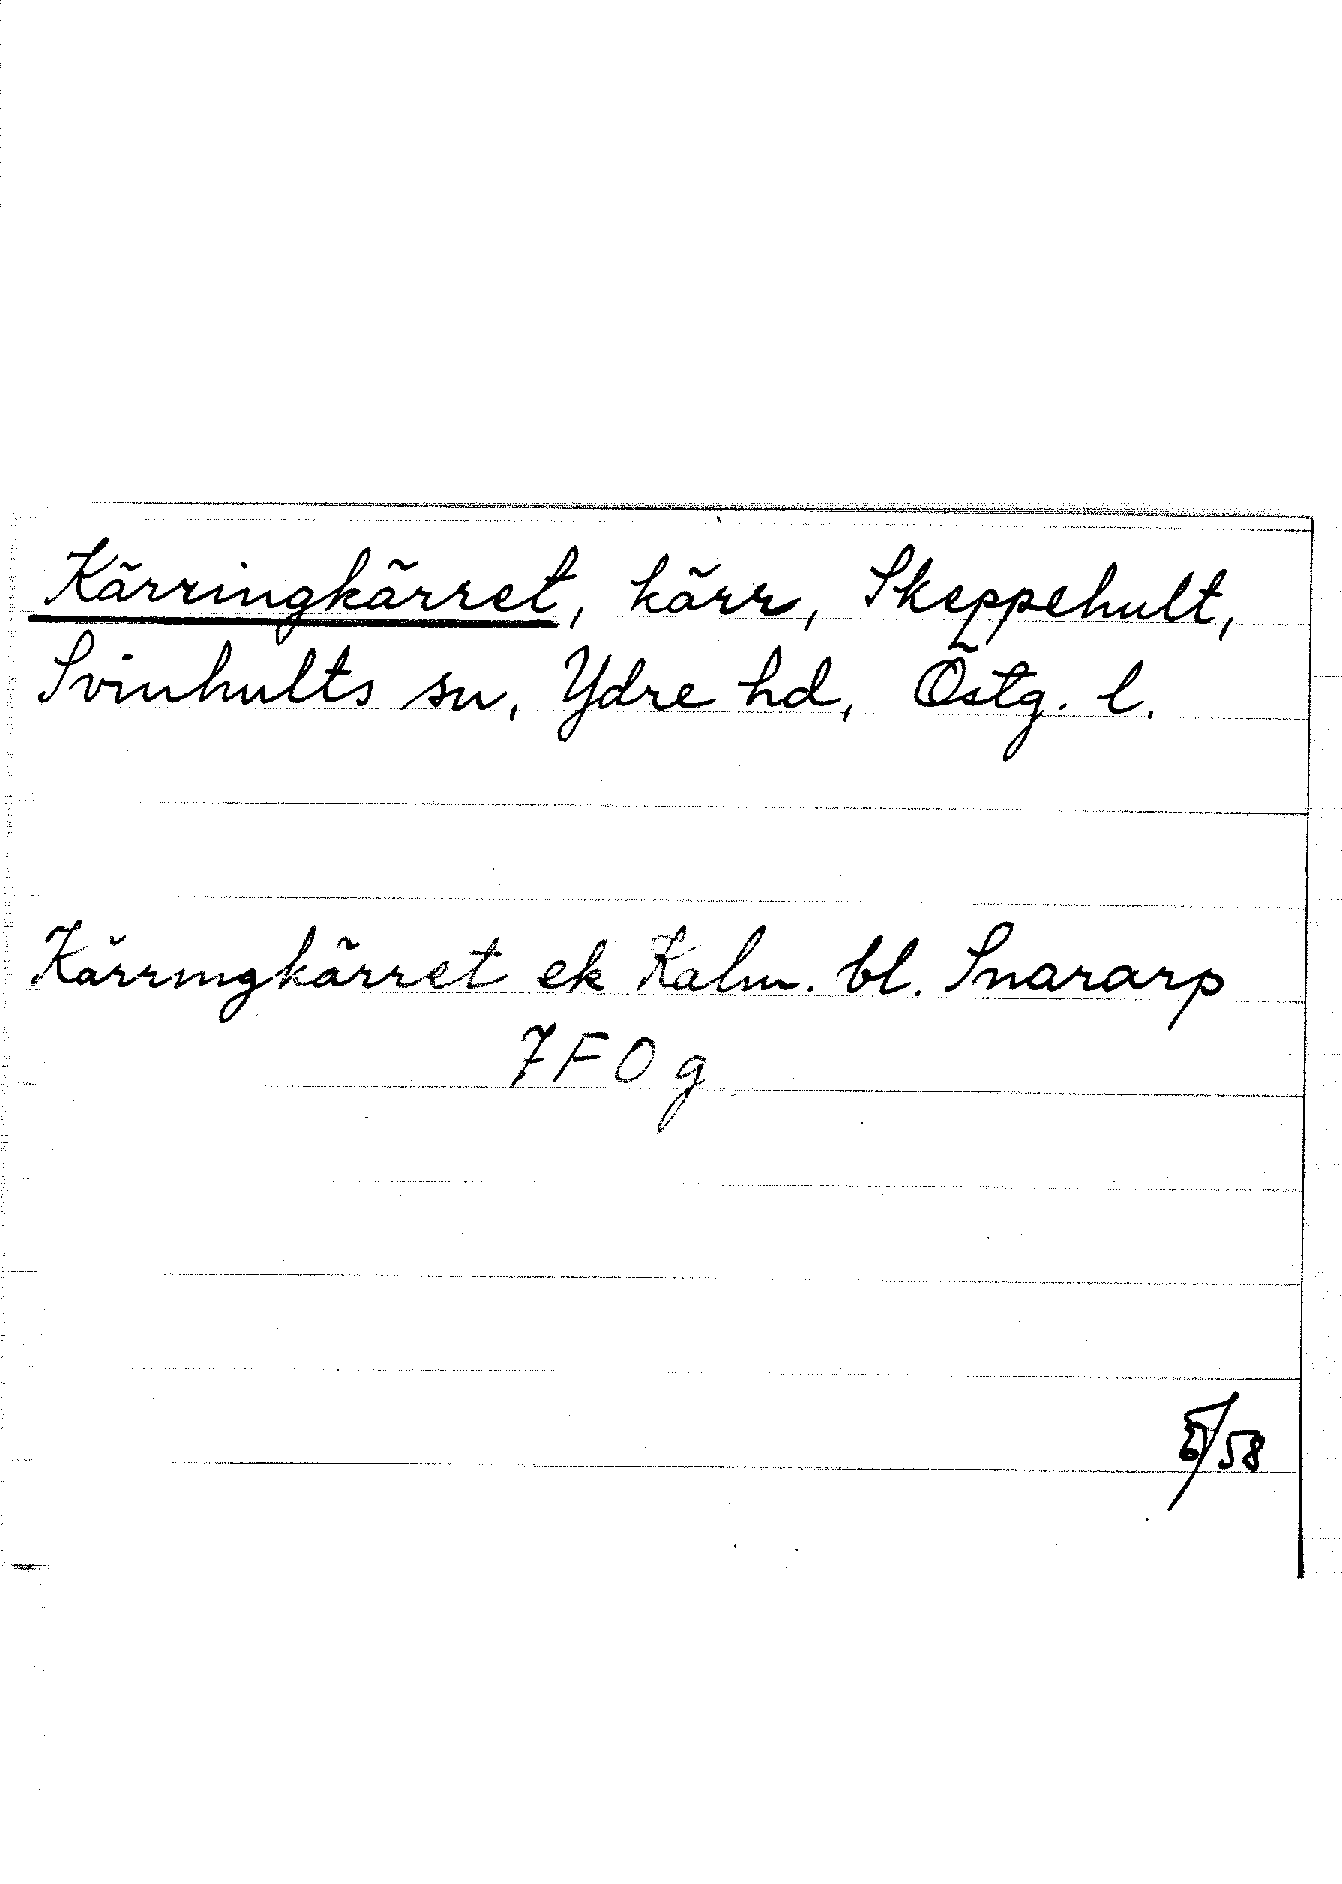 Kärringkärret, kärr, Skeppehult,
Svinhults sn, Ydre hd, Östg. l.
Kärringkärret ek Kalm. bl. Snararp
7 F 0 g
/58